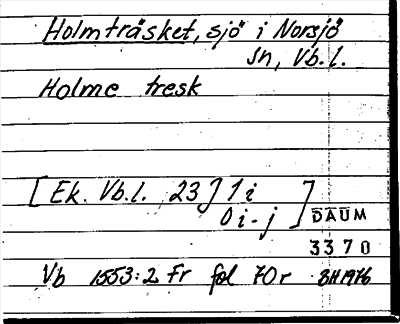 Holmträsket, sjö i Norsjö
sn, Vb.l.
Holme tresk
[Ek. Vb.l. 23] 1 i
0 i-j ]
DAUM
3370
Vb 1553:2 Fr fol 70r BH 1976